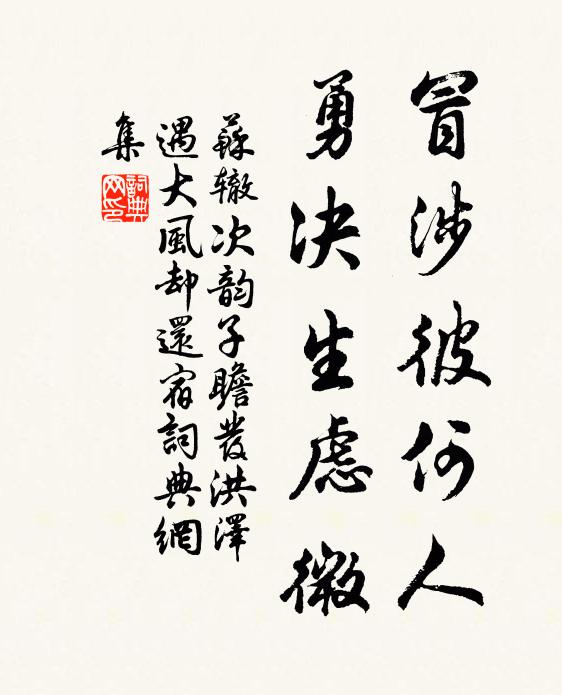 冒涉彼何人
勇决生虑微
蘇辙次韵子瞻發洪澤
遇大風却還宿詞典網
集
詞典
网印